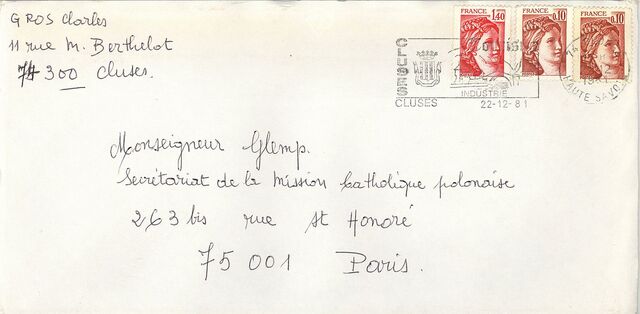 GROS Charles
11 rue M. Berthelot
74 300 Cluses.
FRANCE
1,40
FRANCE
0,10
FRANCE
0,10
CLUSES
INDUSTRIE
CLUSES
22-12-81
74
HAUTE SAVOIE
Monseigneur Glemp.
Secrétariat de la Mission Catholique polonaise
263 bis rue St Honoré
75 001 Paris.